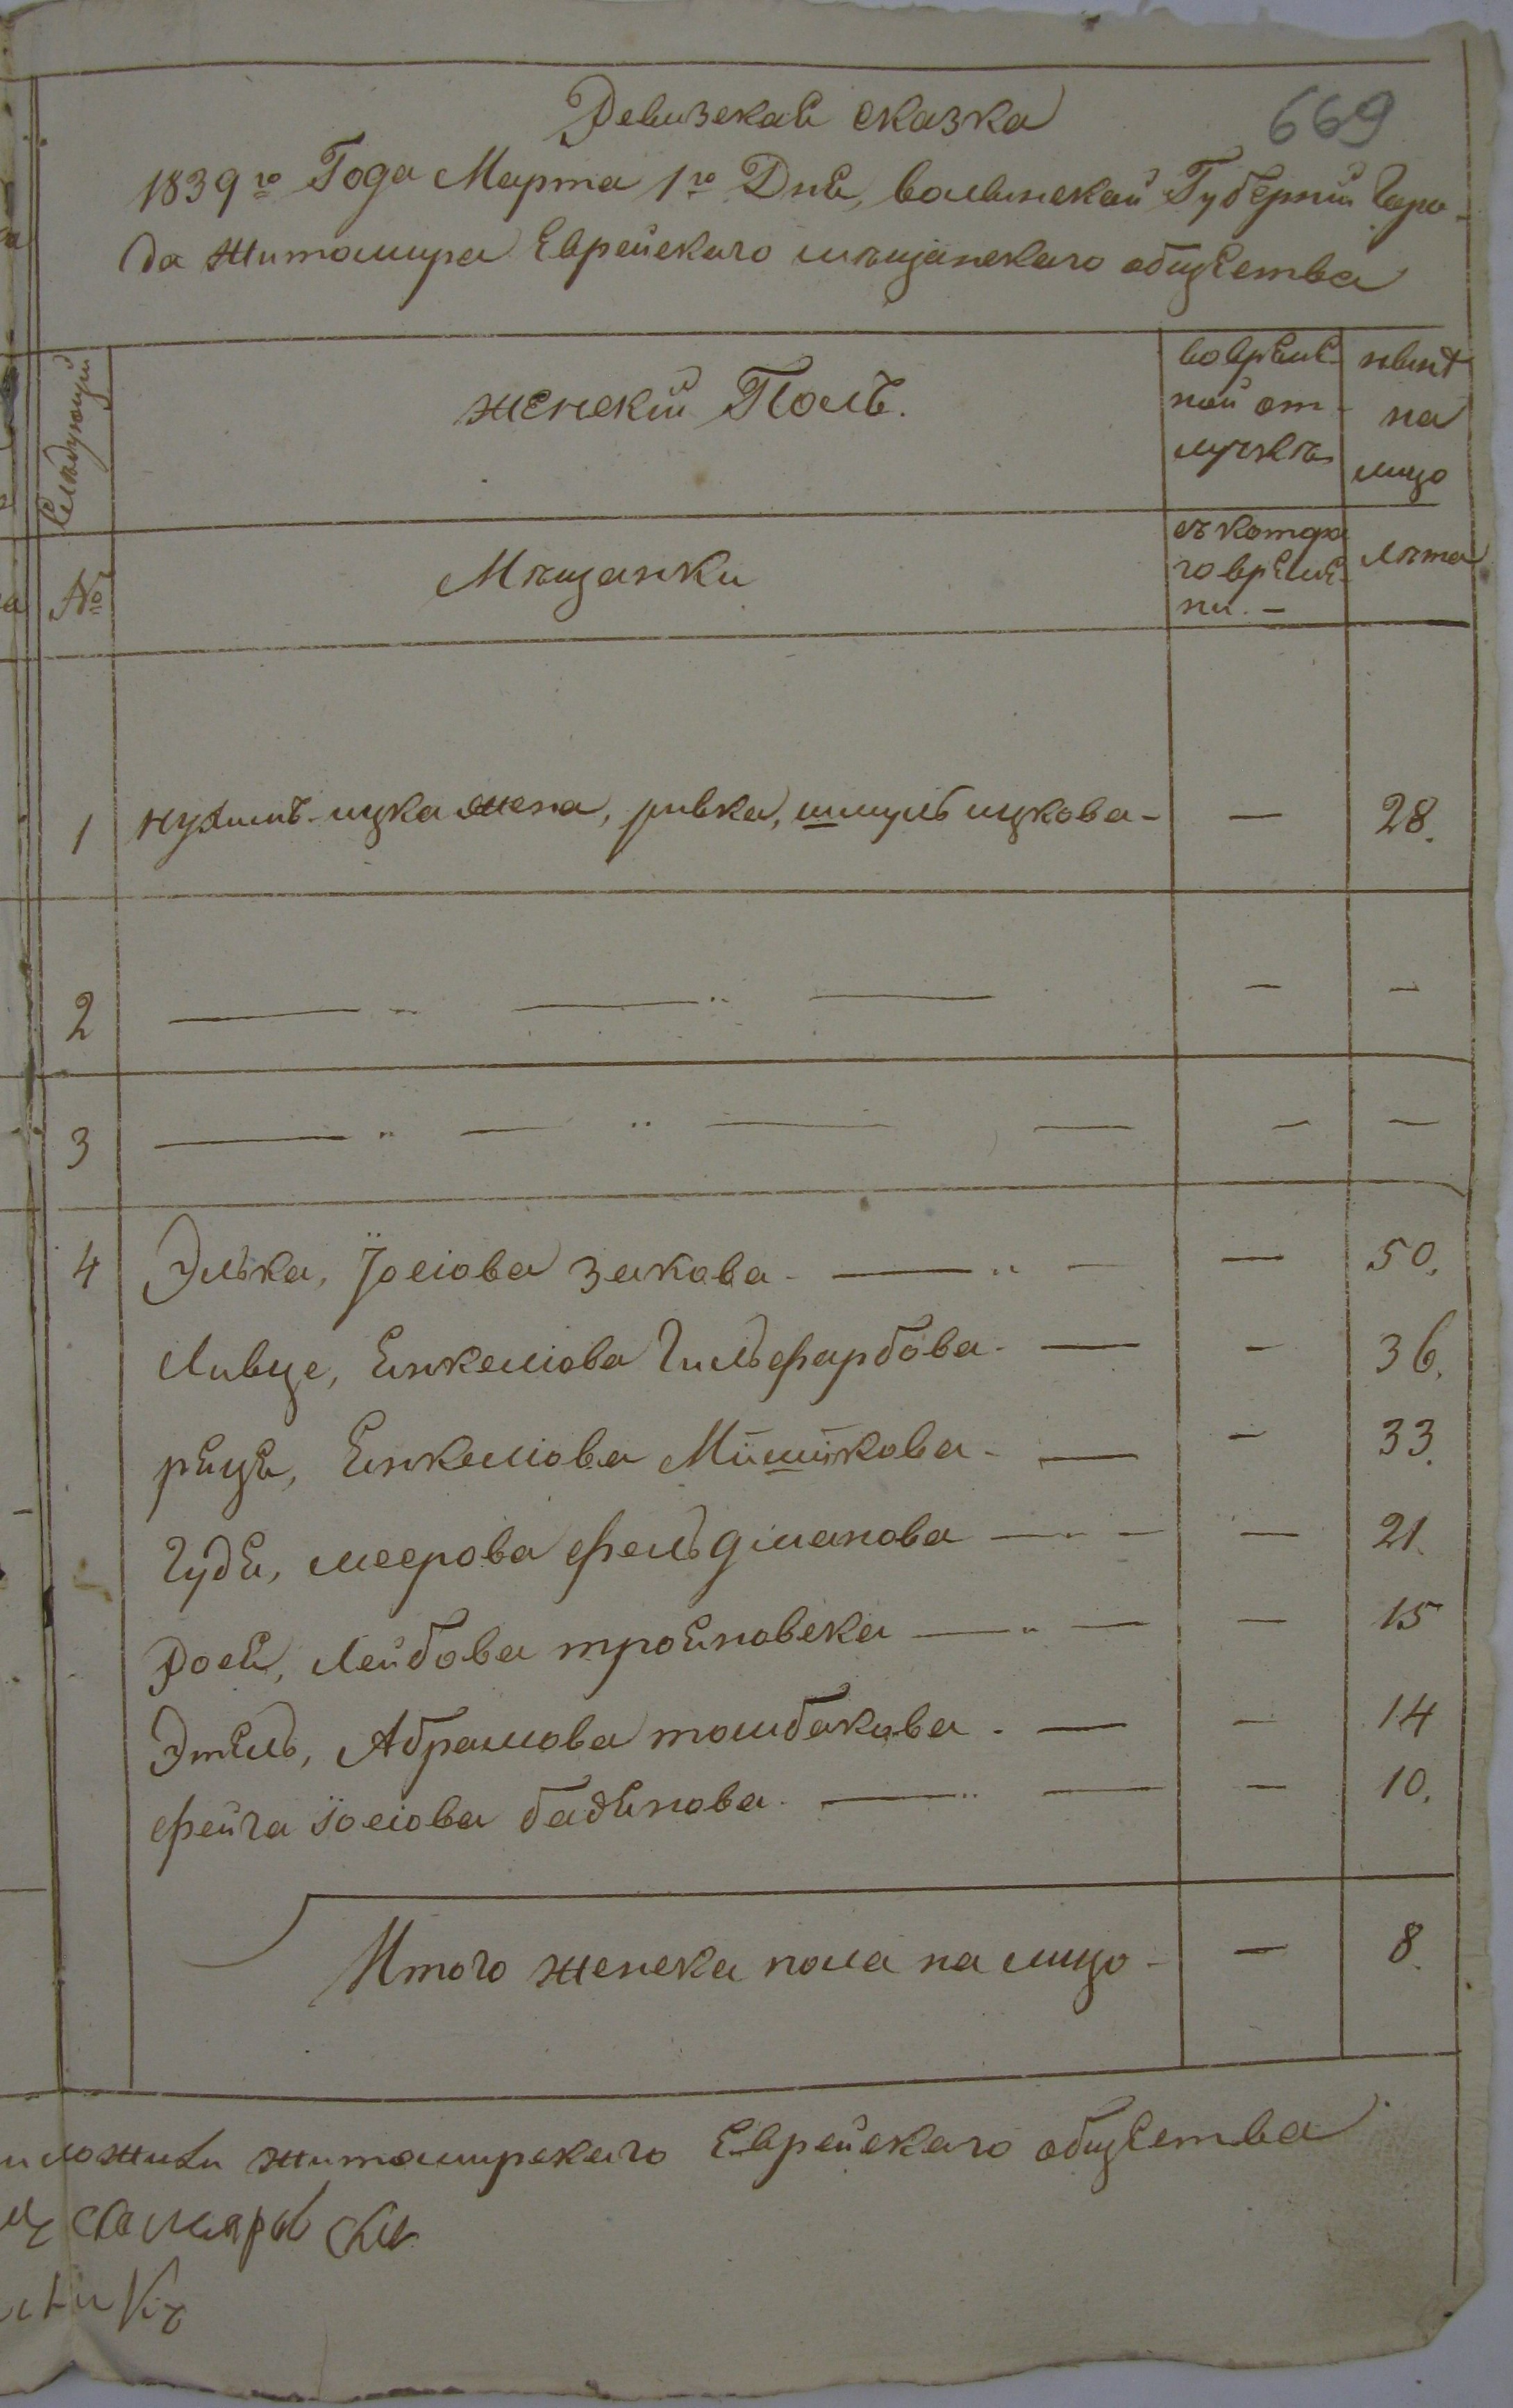 Ревизская сказка
669
1839го Года Марта 1го Дня, волынской Губернии Горо-
да Житомира Еврейского мѣщанского общества
Слѣдующий
женский Полъ.
во времен-
ной от-
лучкѣ
ныне
на
лицо
№
Мѣщанки
съ которо
го време-
ни. —
лѣта
1 нухимъ-ицка жена, ривка, шмуль ицкова - — 28.
2 — — — — —
3 — — — — — —
4 Элька, Їосіова закова - — — — 50.
Ливце, Янкеліова Гильфарбова - — - 36.
рейзя, Янкеліова Мїишкова - — - 33.
Гудя, меерова фельдманова — - — 21.
Рося, Лейбова трояновска — — — 15
Этель, Абрамова толибакова . — - 14
фейга їосіова бадянова - — — - 10.
Итого женска пола на лицо - — 8.
житомирского Еврейского общества